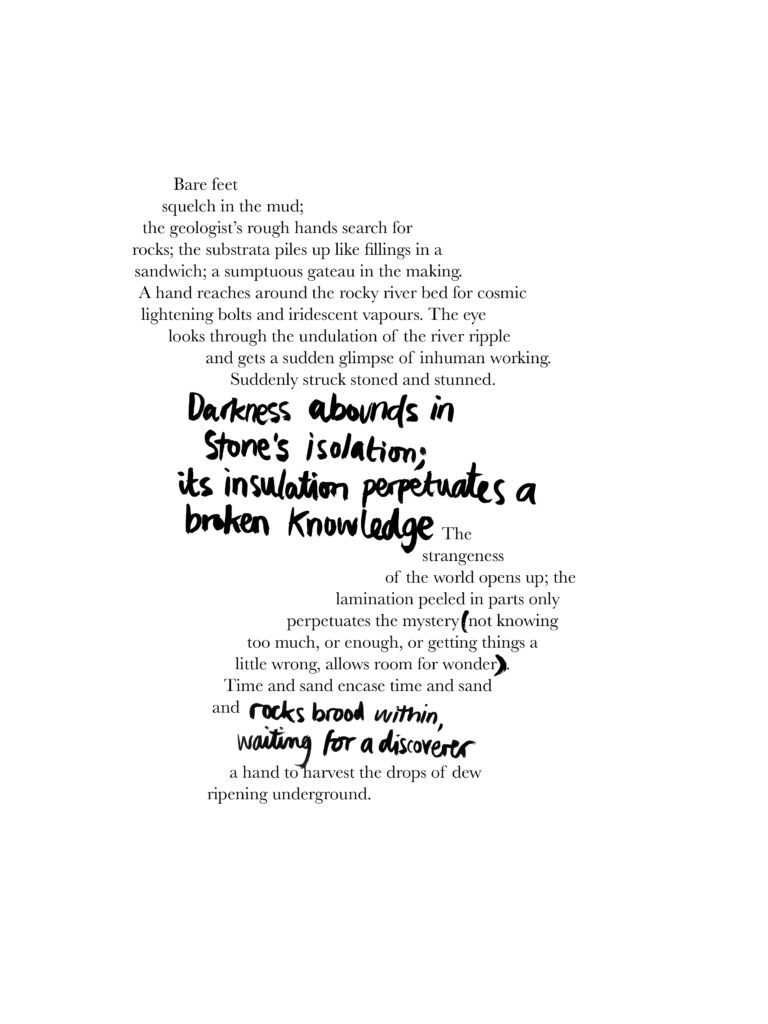 Bare feet
squelch in the mud;
the geologist’s rough hands search for
rocks; the substrata piles up like fillings in a
sandwich; a sumptuous gateau in the making.
A hand reaches around the rocky river bed for cosmic
lightening bolts and iridescent vapours. The eye
looks through the undulation of the river ripple
and gets a sudden glimpse of inhuman working.
Suddenly struck stoned and stunned.
Darkness abounds in
Stone's isolation;
its insulation perpetuates a
broken Knowledge The
strangeness
of the world opens up; the
lamination peeled in parts only
perpetuates the mystery (not knowing
too much, or enough, or getting things a
little wrong, allows room for wonder).
Time and sand encase time and sand
and rocks brood within,
waiting for a discoverer
a hand to harvest the drops of dew
ripening underground.